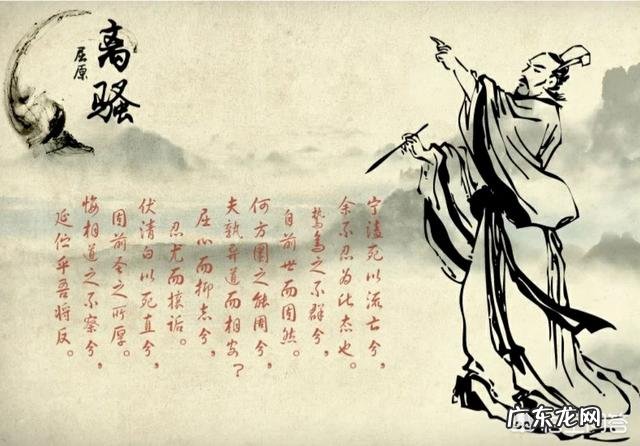 离骚
屈原
宁溘死以流亡兮，
余不忍为此态也。
鸷鸟之不群兮，
自前世而固然。
何方圜之能周兮，
夫孰异道而相安？
屈心而抑志兮，
忍尤而攘诟。
伏清白以死直兮，
固前圣之所厚。
悔相道之不察兮，
延伫乎吾将反。
广东龙网